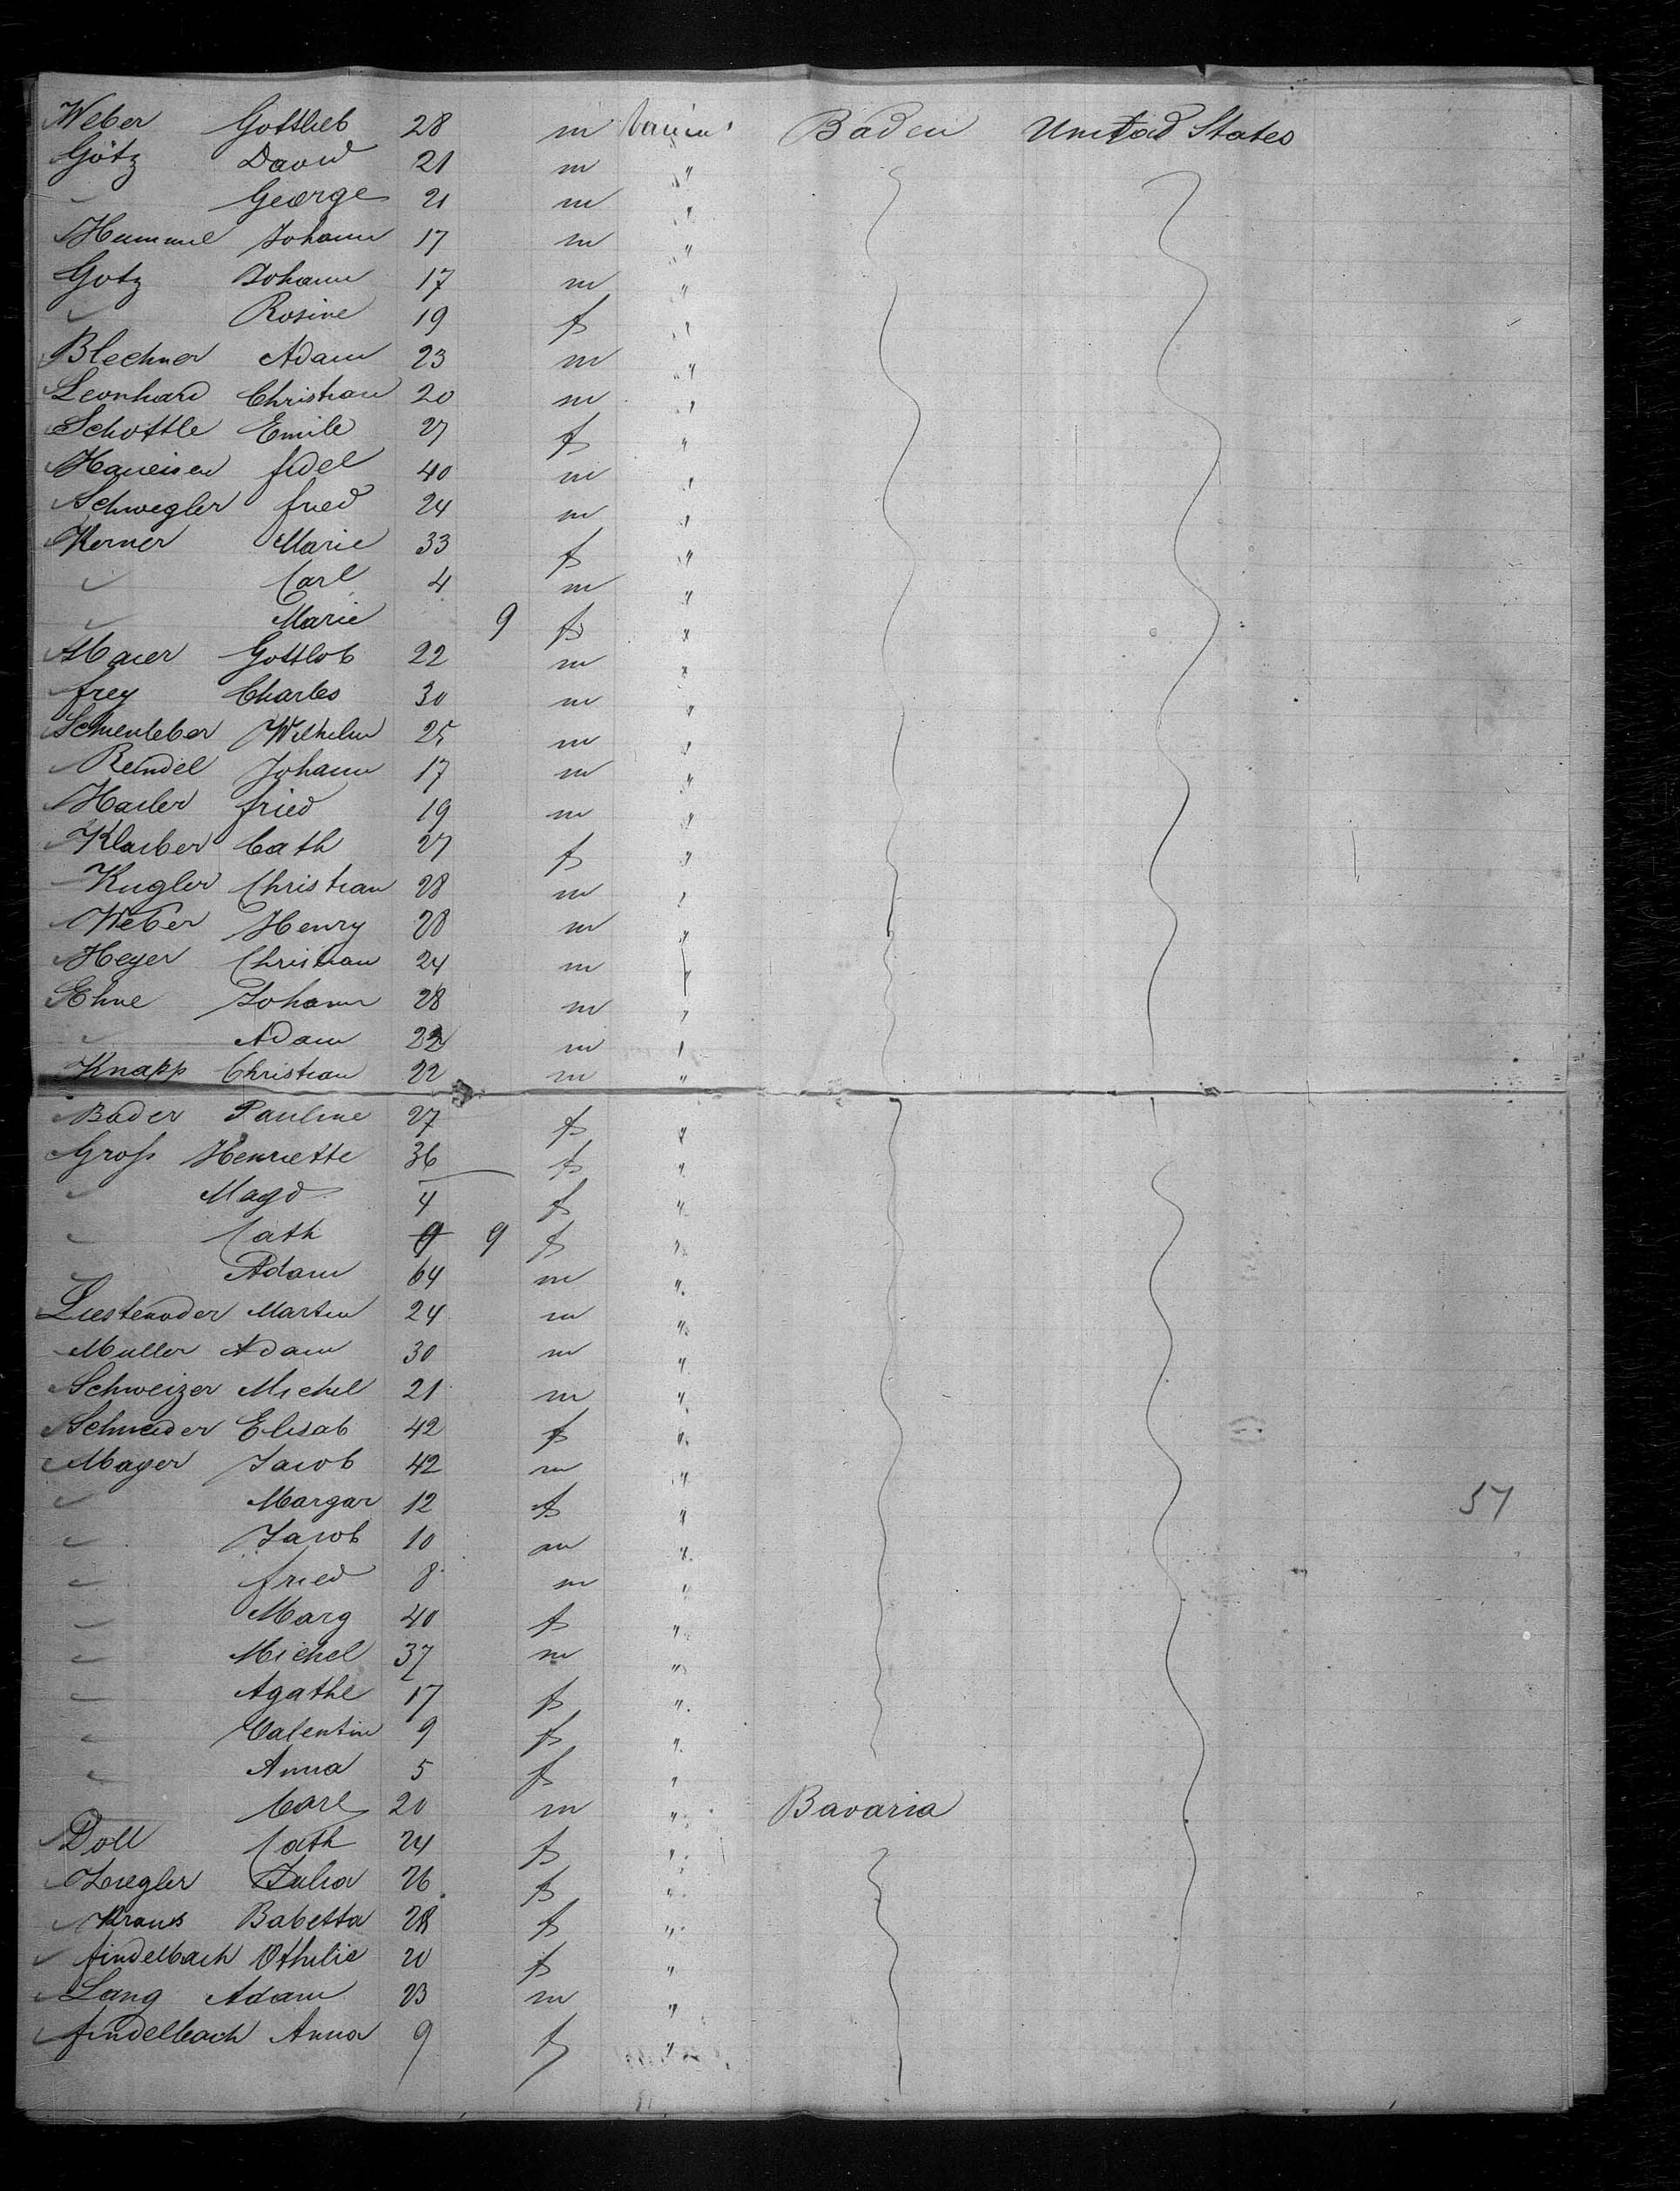 Weber Gottlieb 28 m Baden United States
Götz David 21 m "
" George 21 m "
Hummel Johann 17 m "
Gotz Johann 17 m "
" Rosine 19 f "
Blechner Adam 23 m "
Leonhard Christian 20 m "
Schottle Emile 27 f "
Haueisen fidel 40 m "
Schwegler fried 24 m "
Kerner Marie 33 f "
" Carl 4 m "
" Marie 9 f "
Maier Gottlob 22 m "
frey Charles 30 m "
Wilhelm 25 m "
Reindel Johann 17 m "
Hailer fried 19 m "
Klaiber Cath 27 f "
Kugler Christian 28 m "
Weber Henry 28 m "
Heyer Christian 24 m "
Ehne Johann 28 m "
" Adam 22 m "
Knapp Christian 22 m "
Bader Pauline 27 f "
Groß Henriette 36 f "
" Magd 4 f "
" Cath 9 9 f "
" Adam 64 m "
Martin 24 m "
Muller Adam 30 m "
Schweizer Michel 21 m "
Schneider Elisab 42 f "
Mayer Jacob 42 m "
" Margar 12 f "
" Jacob 10 m "
" fried 8 m "
" Marg 40 f "
" Michel 37 m "
" Agathe 17 f "
" Valentin 9 f "
" Anna 5 f "
Carl 20 m " Bavaria
Doll Cath 24 f "
Ziegler Julia 26 f "
Kraus Babetta 28 f "
findelbach Othilie 20 f "
Lang Adam 23 m "
findelbach Anna 9 f "
57